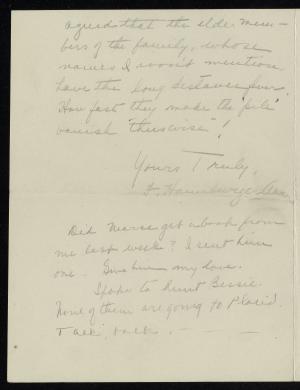 agreed that the elder mem-
bers of the family, whose
names I won't mention
have the long distance
How fast they made the "pile"
vanish "thuswise"!
Yours Truly,
F.
Did get a book from
me last week? I sent him
one. Give him my love.
Spoke to Aunt Bessie.
None of them are going to Placid.
Talk, talk. -